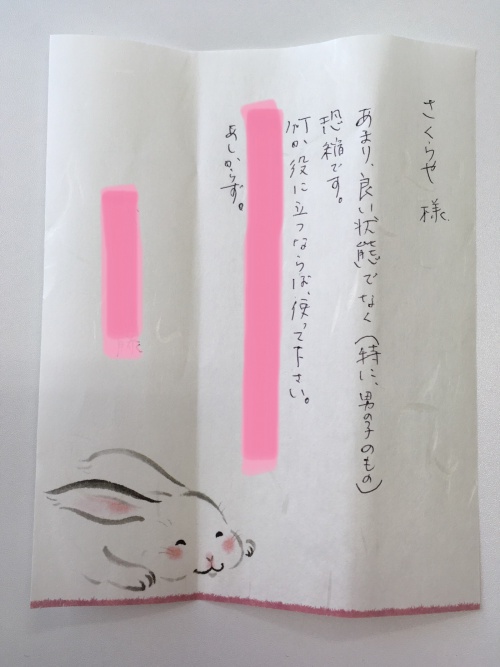 さくらや 様
あまり、良い状態でなく(特に、男の子のもの)
恐縮です。
何か役に立つならば、使って下さい。
あしからず。